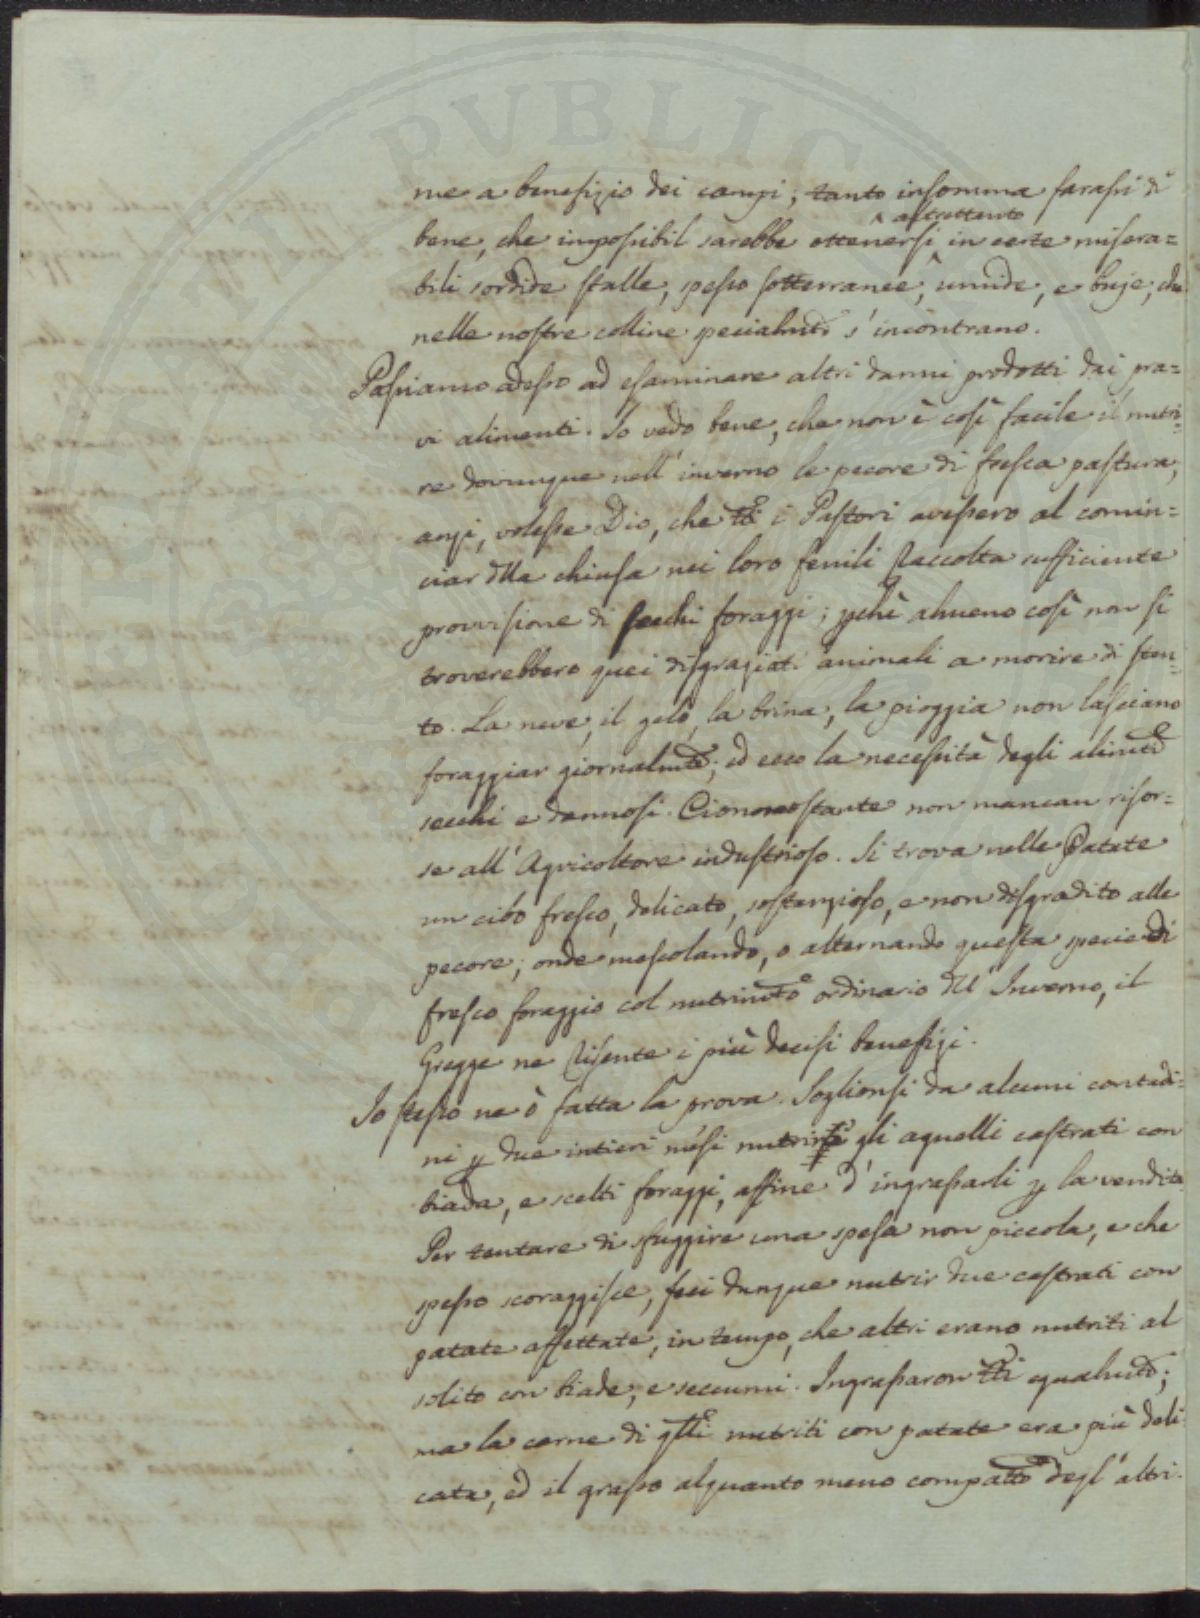 PVBLIC
me a benefizio dei campi; tanto insomma farassi di
altrettanto
bene, che impossibil sarebbe ottenersi in certe misera=
bili sordide stalle, spesso sotterranee, umide, e buje, che
nelle nostre colline specialmte s'incontrano.
Passiamo adesso ad esaminare altri danni prodotti dai pra=
vi alimenti. Io vedo bene, che non è così facile il nutri=
re dovunque nell'inverno le pecore di fresca pastura,
anzi, volesse Dio, che tti i Pastori avessero al comin=
ciar dlla chiusa nei loro fenili raccolta sufficiente
provvisione di secchi foraggi; pchè almeno così non si
troverebbero quei disgraziati animali a morire di sten=
to. La neve, il gelo, la brina, la pioggia non lasciano
foraggiar giornalmte; ed ecco la necessità degli alimti
secchi e dannosi. Ciononostante non mancan risor=
se all'Agricoltore industrioso. Si trova nelle Patate
un cibo fresco, delicato, sostanzioso, e non disgradito alle
pecore; onde mescolando, o alternando questa specie di
fresco foraggio col nutrimto ordinario dll'Inverno, il
Gregge ne risente i più decisi benefizi.
Io stesso ne ò fatta la prova. Soglionsi da alcuni contadi=
ni p due intieri mesi nutrire gli agnelli castrati con
biada, e scelti foraggi, affine d'ingrassarli p la vendita
Per tentare di sfuggire una spesa non piccola, e che
spesso scoraggisce, feci dunque nutrir due castrati con
patate affettate, in tempo, che altri erano nutriti al
solito con biade, e seccumi. Ingrassaron tti egualmte;
ma la carne di qlli nutriti con patate era più deli
cata, ed il grasso alquanto meno compatto degl'altri.